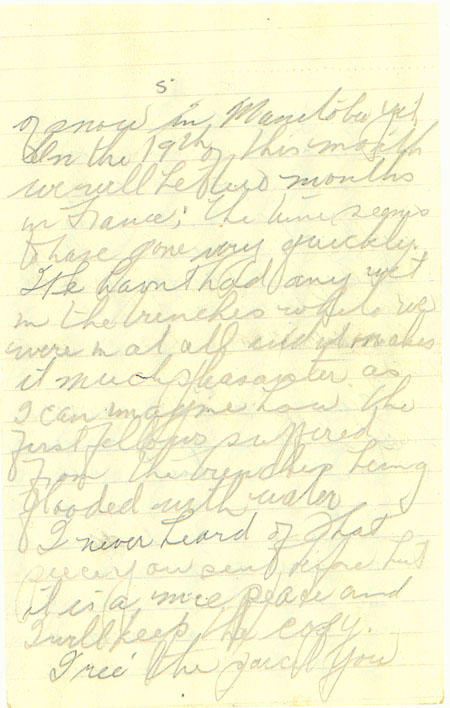 5
of snow in Manitoba yet
On the 19th of this month
we will be two months
in France; the time seems
to have gone very quickly.
We havn't had any wet
in the trenches while we
were in at all and it makes
it much pleasanter as
I can imagine how the
first fellows suffered
from the trenches being
flooded with water
I never heard of that
piece you sent before but
it is a nice peace and
I will keep the copy.
I rec'd the parcel you